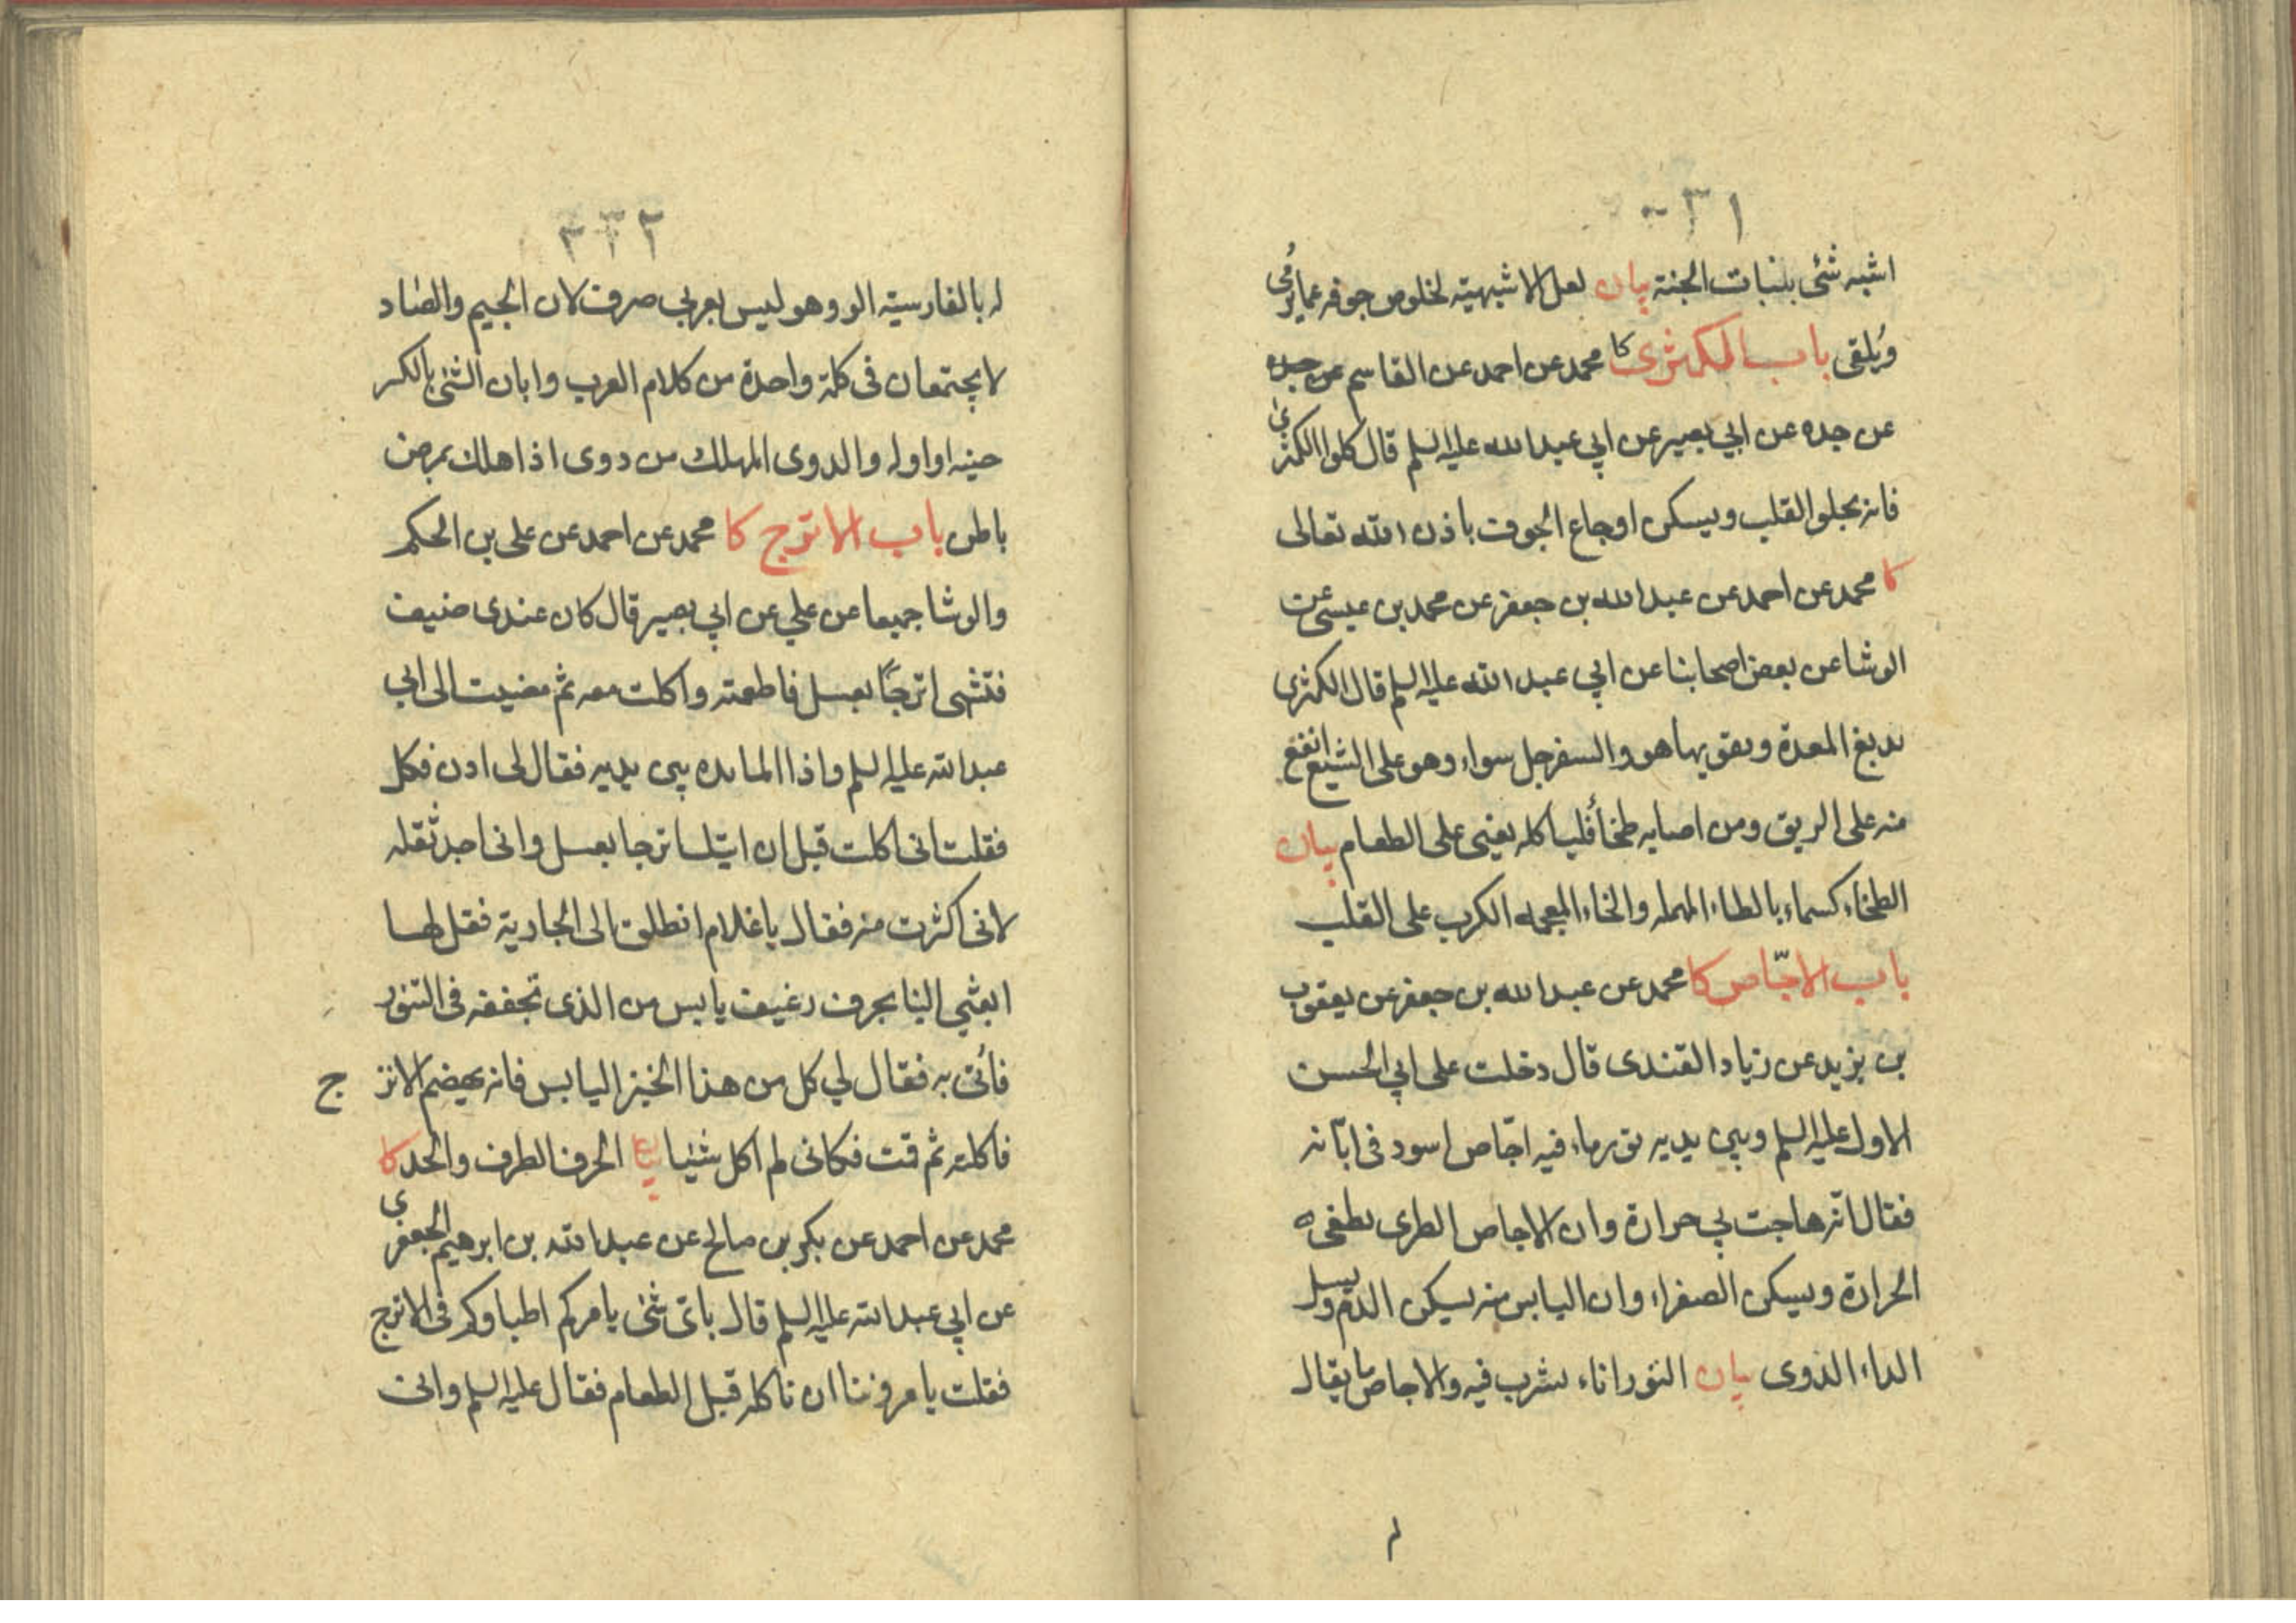 ٢٣١
اشبه شئ بنبات الجنة بيان لعل الاشبهيته لخلوص جوفه عما يرمى
ويلقى باب الكمثرى كا محمد عن احمد عن القاسم عن جده
عن جده عن ابي بصير عن ابي عبد الله عليه السلم قال كلوا الكمثرى
فانه يجلو القلب ويسكن اوجاع الجوف باذن الله تعالى
كا محمد عن احمد عن عبد الله بن جعفر عن محمد بن عيسى عن
الوشا عن بعض اصحابنا عن ابي عبد الله عليه السلم قال الكمثرى
يدبغ المعدة ويقويها هو والسفرجل سواء وهو على الشبع انفع
منه على الريق ومن اصابه طخاء فلياكله يعنى على الطعام بيان
الطخاء كسماء بالطاء المهمله والخاء المعجمه الكرب على القلب
باب الاجّاص كا محمد عن عبد الله بن جعفر عن يعقوب
بن يزيد عن زياد القندى قال دخلت على ابي الحسن
الاول عليه السلم وبين يديه تور ماء فيه اجّاص اسود فى ابّانه
فقال انّه هاجت بي حرارة وان الاجاص الطرى يطفى
الحرارة ويسكن الصفراء وان اليابس منه يسكن الدم ويسل
الداء الدوى بيان التور اناء يشرب فيه والاجاص ما يقال
ل‍
٢٣٢
له بالفارسيّه الو وهو ليس بعربي صرف لان الجيم والصاد
لا يجتمعان فى كلمة واحدة من كلام العرب وابان الشئ بالكسر
حينه او اوله والدوى المهلك من دوى اذا هلك بمرض
باطن باب الاترج كا محمد عن احمد عن على بن الحكم
والوشا جميعا عن علي عن ابي بصير قال كان عندى ضيف
فتشهى اترجًا بعسل فاطعمته واكلت معه ثم مضيت الى ابى
عبد الله عليه السلم واذا المايده بين يديه فقال لى ادن فكل
فقلت انى اكلت قبل ان اتيك اترجا بعسل وانى اجد ثقله
لانى اكثرت منه فقال يا غلام انطلق الى الجارية فقل لها
ابعثي الينا بحرف رغيف يابس من الذى تجففه فى التنور
فأتى به فقال لي كل من هذا الخبز اليابس فانه يهضم الاترج
فاكلته ثم قمت فكانى لم اكل شيئا بيان الحرف الطرف والحد كا
محمد عن احمد عن بكر بن صالح عن عبد الله بن ابرهيم الجعفرى
عن ابي عبد الله عليه السلم قال باىّ شئ يامركم اطباوكم فى الاترج
فقلت يامروننا ان ناكله قبل الطعام فقال عليه السلم وانى